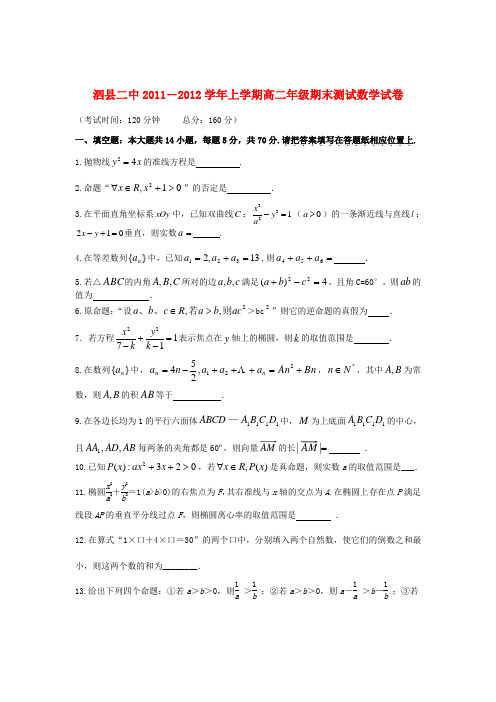 泗县二中 2011－2012 学年上学期高二年级期末测试数学试卷
（考试时间：120 分钟 总分：160 分）
一、填空题：本大题共 14 小题，每题 5 分，共 70 分.请把答案填写在答题纸相应位置上.
1.抛物线 y² = 4x 的准线方程是 ________ .
2.命题“ ∀x ∈ R, x² + 1 > 0 ”的否定是 ________ .
3.在平面直角坐标系 xOy 中，已知双曲线 C ： x²/a² − y² = 1 （ a > 0 ）的一条渐近线与直线 l ：
2x − y + 1 = 0 垂直，则实数 a = ________ .
4.在等差数列{aₙ}中，已知 a₁ = 2, a₂ + a₃ = 13 ，则 a₄ + a₅ + a₆ = ________ .
5.若△ ABC 的内角 A, B, C 所对的边 a, b, c 满足 (a + b)² − c² = 4 ，且角 C=60°，则 ab 的
值为 ________ .
6.原命题：“设 a、b、c ∈ R, 若a > b, 则ac² ＞bc²”则它的逆命题的真假为 ________ .
7．若方程 x²/(7−k) + y²/(k−1) = 1 表示焦点在 y 轴上的椭圆，则 k 的取值范围是 ________ .
8.在数列{aₙ}中， aₙ = 4n − 5/2 , a₁ + a₂ + Λ + aₙ = An² + Bn ， n ∈ N* ，其中 A, B 为常
数，则 A, B 的积 AB 等于 ________ .
9.在各边长均为 1 的平行六面体 ABCD — A₁B₁C₁D₁ 中， M 为上底面 A₁B₁C₁D₁ 的中心，
且 AA₁, AD, AB 每两条的夹角都是 60º，则向量 AM 的长 | AM |= ________ .
10.已知 P(x) : ax² + 3x + 2 > 0 ，若 ∀x ∈ R, P(x) 是真命题，则实数 a 的取值范围是___.
11.椭圆 x²/a² + y²/b² ＝1(a>b>0)的右焦点为 F,其右准线与 x 轴的交点为 A.在椭圆上存在点 P 满足
线段 AP 的垂直平分线过点 F，则椭圆离心率的取值范围是 ________ .
12.在算式“1×口+4×口＝30”的两个口中，分别填入两个自然数，使它们的倒数之和最
小，则这两个数的和为________.
13.给出下列四个命题：①若 a＞b＞0，则 1/a ＞ 1/b ；②若 a＞b＞0，则 a－ 1/a ＞b－ 1/b ；③若